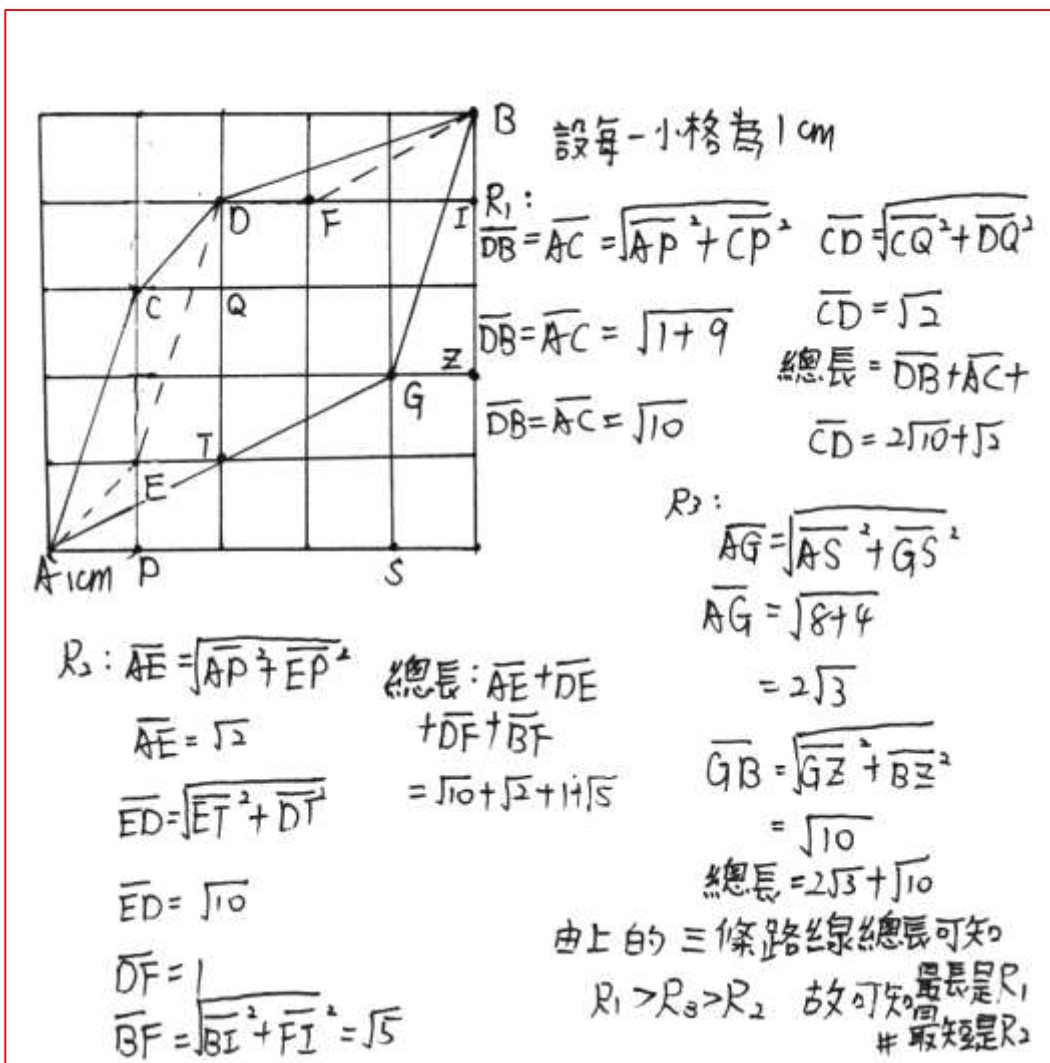 B
設每一小格為1cm
D F I
C Q
G Z
T
E
A 1cm P S
R₁:
DB̅ = AC̅ = √(AP̅² + CP̅²)
DB̅ = AC̅ = √(1+9)
DB̅ = AC̅ = √10
CD̅ = √(CQ̅² + DQ̅²)
CD̅ = √2
總長 = DB̅ + AC̅ +
CD̅ = 2√10 + √2
R₂: AE̅ = √(AP̅² + EP̅²)
AE̅ = √2
ED̅ = √(ET̅² + DT̅²)
ED̅ = √10
DF̅ = 1
BF̅ = √(BI̅² + FI̅²) = √5
總長: AE̅ + DE̅
+ DF̅ + BF̅
= √10 + √2 + 1 + √5
R₃:
AG̅ = √(AS̅² + GS̅²)
AG̅ = √(8+4)
= 2√3
GB̅ = √(GZ̅² + BZ̅²)
= √10
總長 = 2√3 + √10
由上的三條路線總長可知
R₁ > R₃ > R₂ 故可知最長是R₁
# 最短是R₂